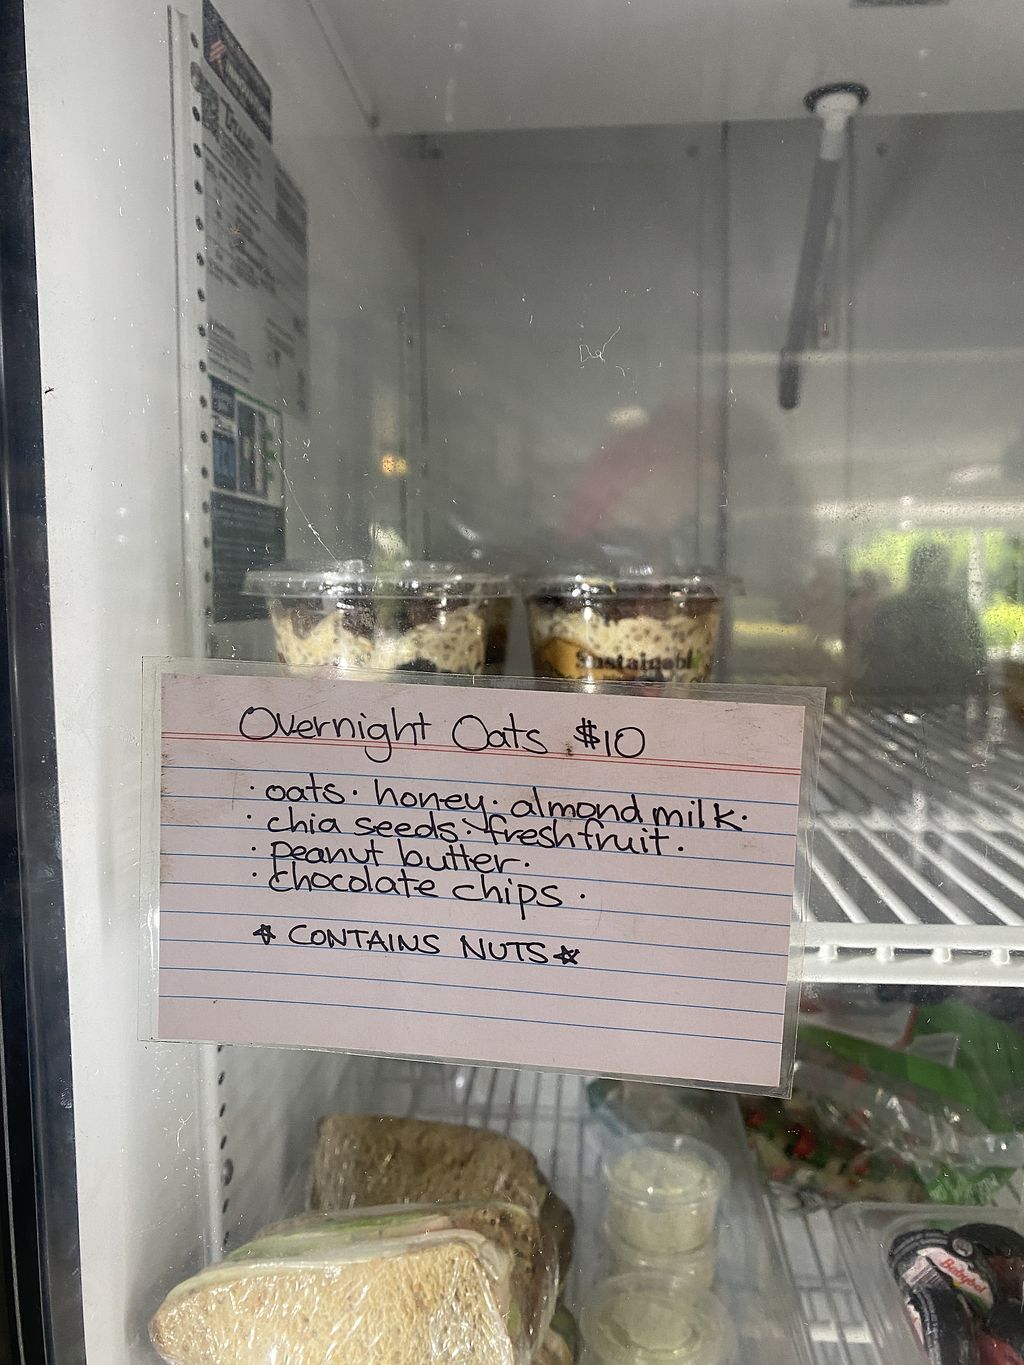 Sustainabl
Overnight Oats $10
· oats · honey · almond milk ·
· chia seeds · fresh fruit ·
· peanut butter ·
· chocolate chips ·
☆ CONTAINS NUTS ☆
Babybel